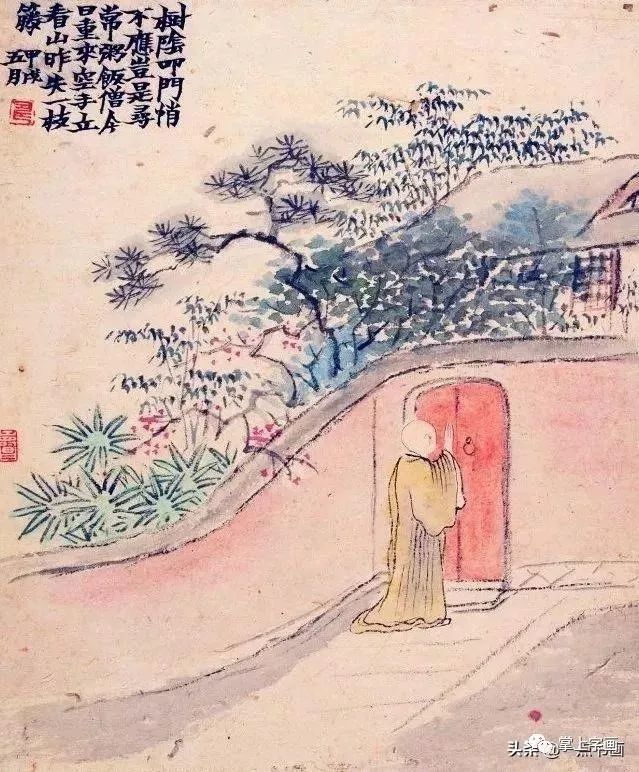 樹陰叩門悄
不應豈是尋
常粥飯僧今
日重來空手立
看山昨失一枝
籐 甲戌
五月
头条
掌上字画